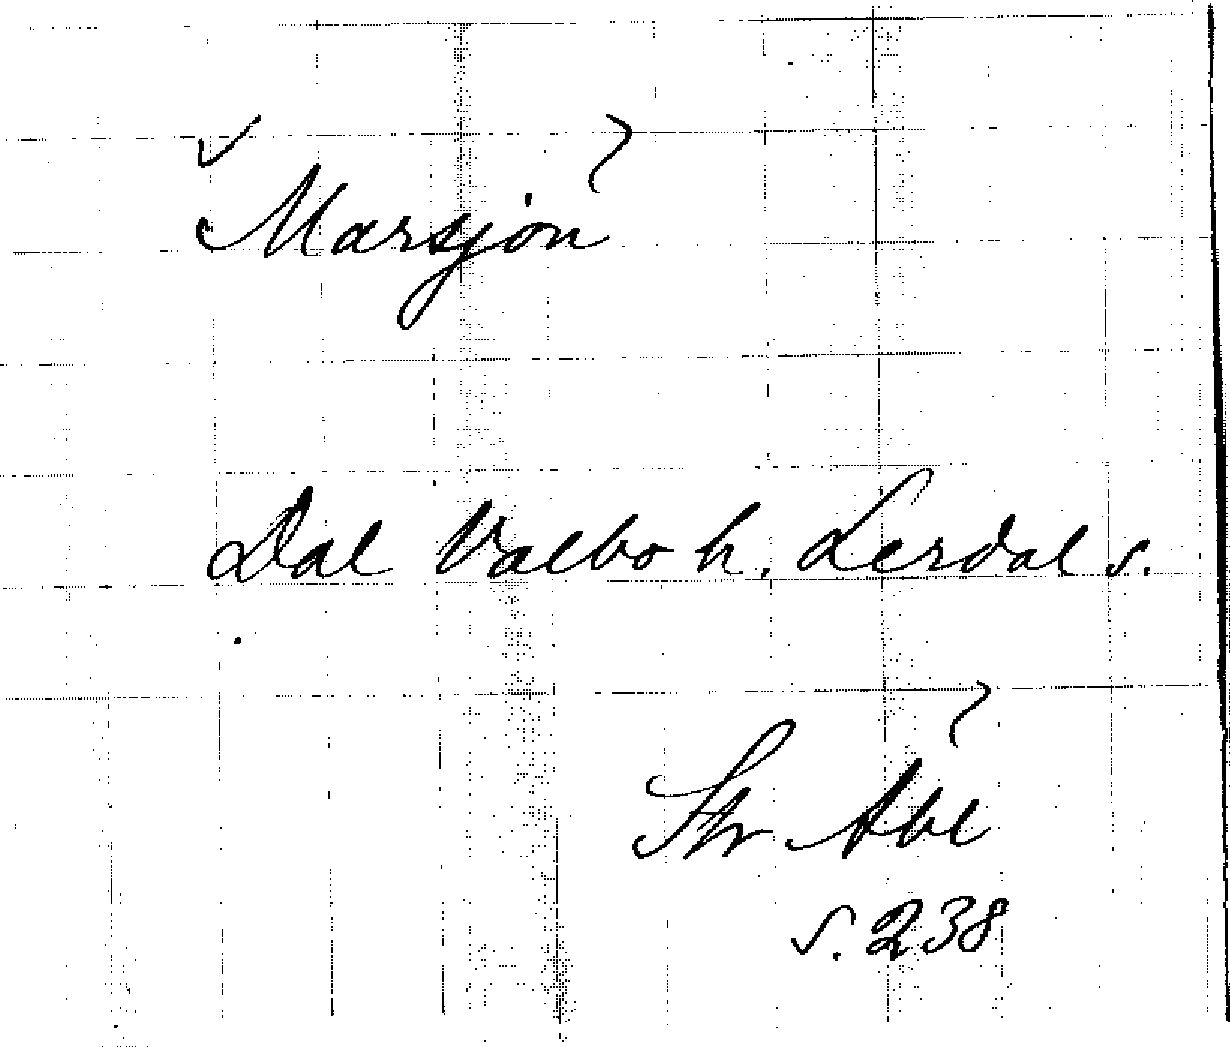 Marsjön
Dal Valbo h. Lerdal s.
s. 238